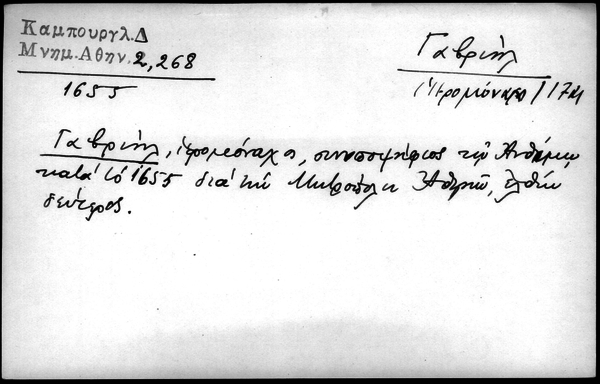 Καμπουργλ.Δ
Μνημ.Αθην. 2,268
1655
Γαβριήλ
ἱερομόναχο /17η
Γαβριήλ, ἱερομόναχος, συνυποψήφιος τοῦ Ἀνθίμου
κατά τό 1655 διά τήν Μητρόπολιν Ἀθηνῶν, ἐλθών
δεύτερος.